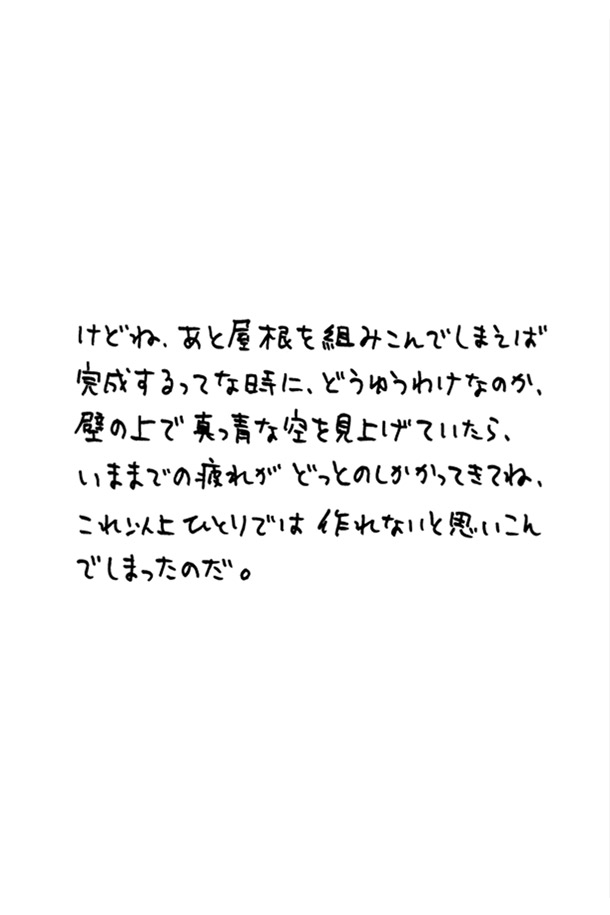 けどね、あと屋根を組みこんでしまえば
完成するってな時に、どうゆうわけなのか、
壁の上で真っ青な空を見上げていたら、
いままでの疲れがどっとのしかかってきてね、
これ以上ひとりでは作れないと思いこん
でしまったのだ。